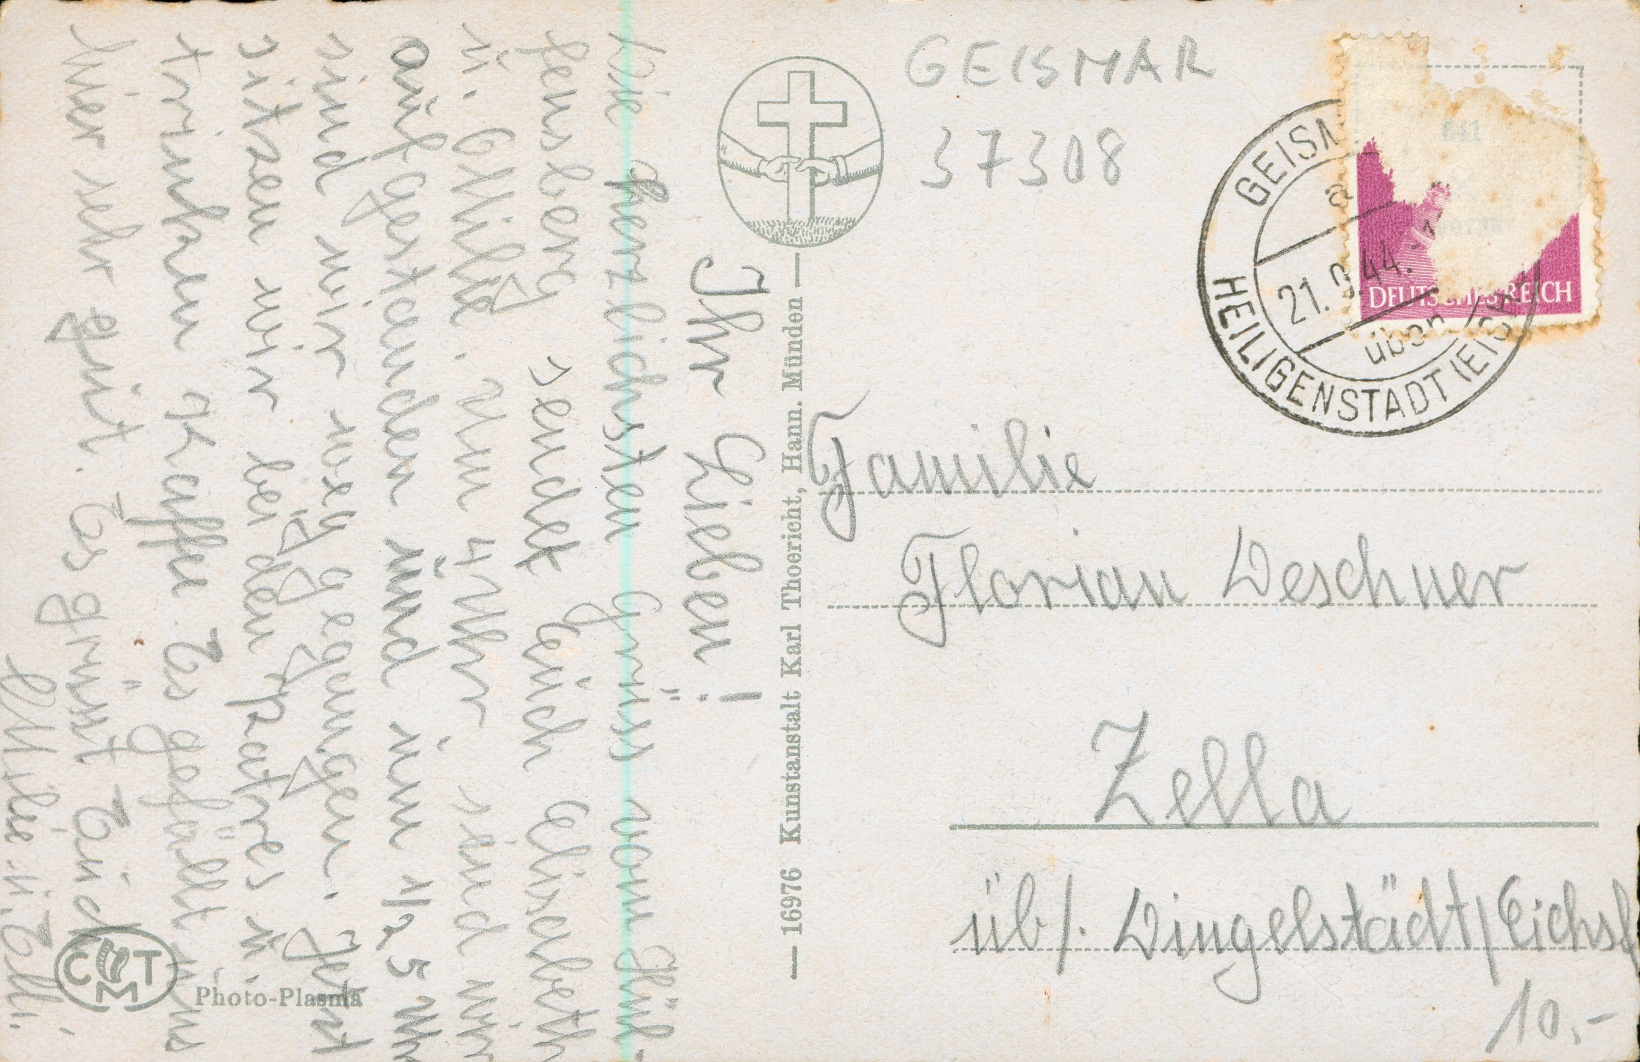 Ihr Lieben!
Die herzlichsten Grüss vom Hül-
fensberg sendet Euch Elisabeth
u. Ottilie. Um 4 Uhr, sind wir
aufgestanden und um 1/2 5 Uhr
sind wir weg gegangen. Jetzt
sitzen wir bei den Patres u.
trinken Kaffee. Es gefällt uns
hier sehr gut. Es grüßt Euch
Ottilie u. Elli.
CTM
Photo-Plasma
— 16976 Kunstanstalt Karl Thoericht, Hann. Münden —
GEISMAR
37308
GEISM
a
21.9.44.
über
HEILIGENSTADT (EICHS
DEUTSCHES REICH
Familie
Florian Deschner
Zella
üb/. Dingelstädt/Eichsf
10,-